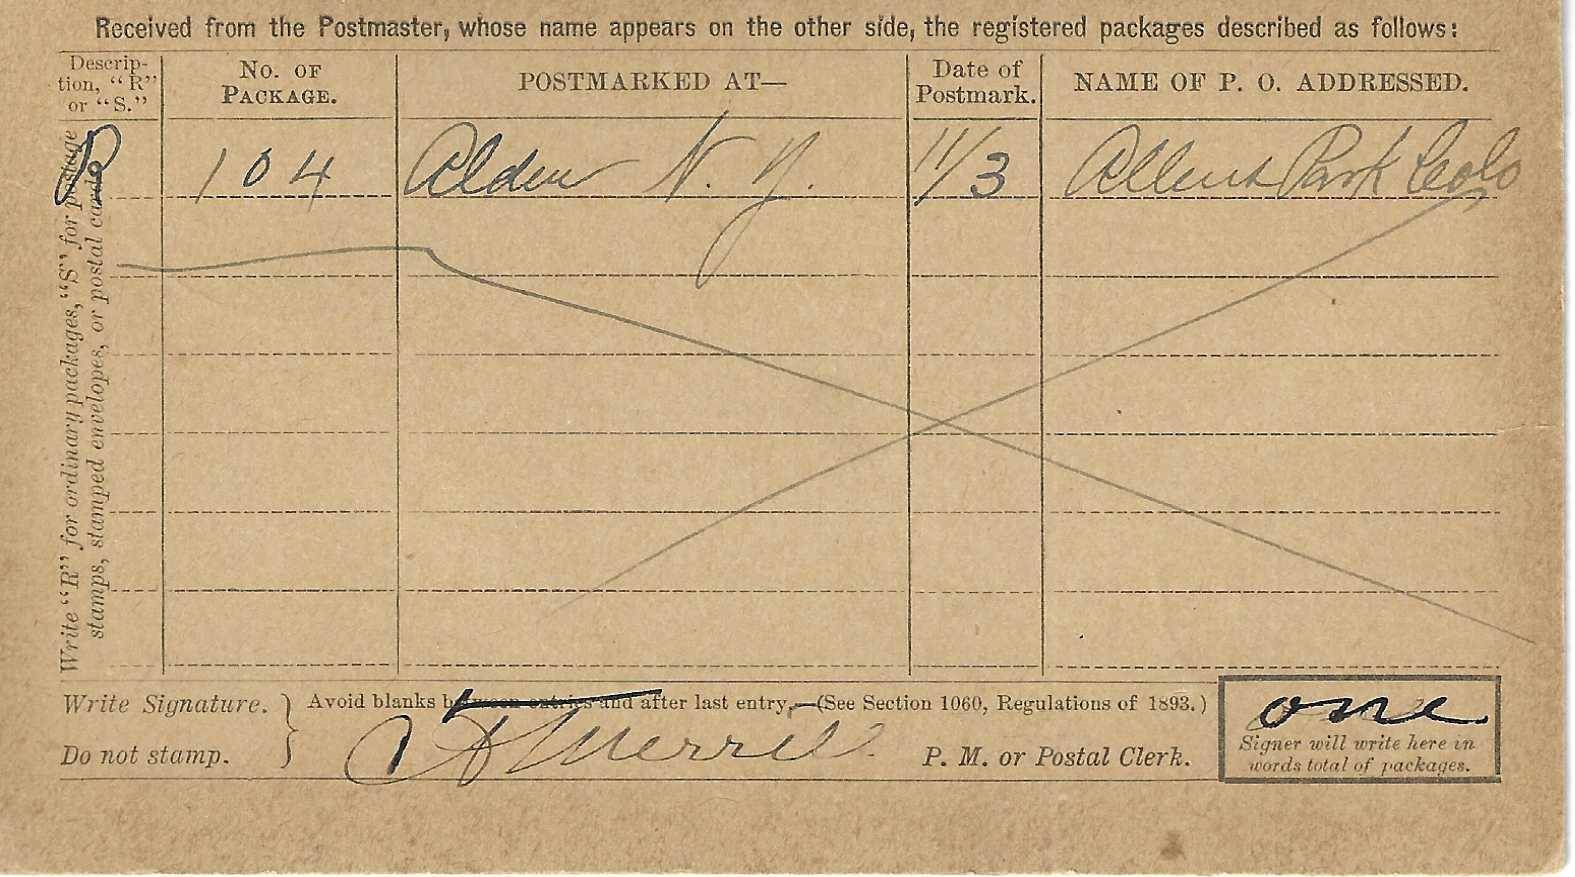 Received from the Postmaster, whose name appears on the other side, the registered packages described as follows:
Descrip-
tion, "R"
or "S."
No. of
Package.
POSTMARKED AT—
Date of
Postmark.
NAME OF P. O. ADDRESSED.
R 104 Alden N. Y. 11/3 Allens Park Colo
Write "R" for ordinary packages, "S" for postage
stamps, stamped envelopes, or postal cards.
Write Signature.
Do not stamp.
Avoid blanks between entries and after last entry,—(See Section 1060, Regulations of 1893.)
Merrill
P. M. or Postal Clerk.
one
Signer will write here in
words total of packages.